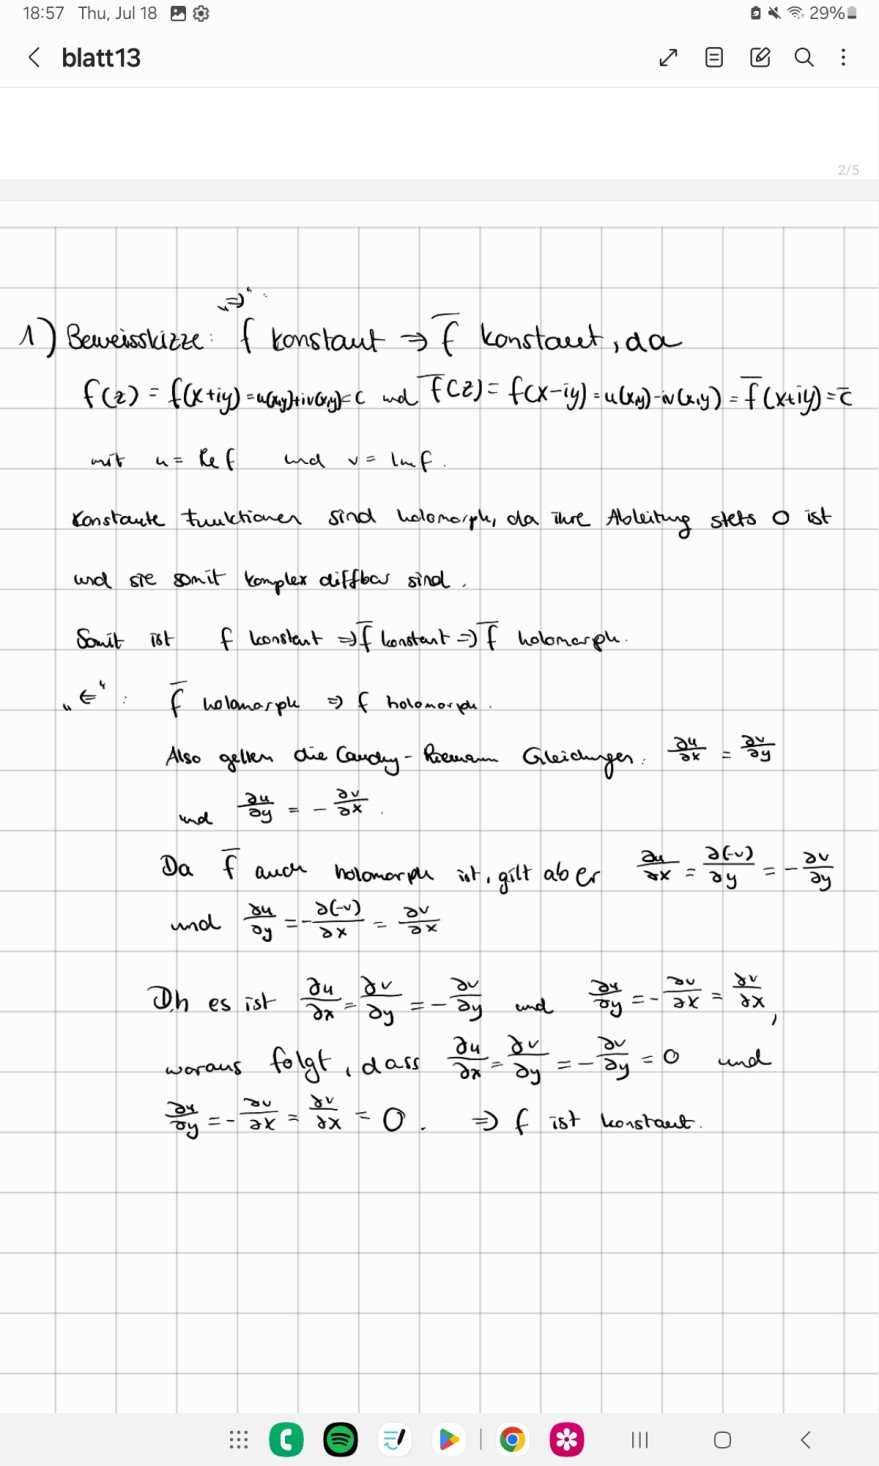 18:57 Thu, Jul 18 29%
blatt13
2/5
„⇒“:
1) Beweisskizze: f konstant ⇒ f̅ konstant, da
f(z) = f(x+iy) = u(x,y)+iv(x,y) = c und f̅(z) = f(x-iy) = u(x,y)-iv(x,y) = f̅(x+iy) = c̅
mit u = Re f und v = Im f.
Konstante Funktionen sind holomorph, da ihre Ableitung stets 0 ist
und sie somit komplex diffbar sind.
Somit ist f konstant ⇒ f̅ konstant ⇒ f̅ holomorph.
„⇐“: f̅ holomorph ⇒ f holomorph.
Also gelten die Cauchy-Riemann Gleichungen: ∂u/∂x = ∂v/∂y
und ∂u/∂y = - ∂v/∂x.
Da f̅ auch holomorph ist, gilt aber ∂u/∂x = ∂(-v)/∂y = - ∂v/∂y
und ∂u/∂y = - ∂(-v)/∂x = ∂v/∂x
D.h es ist ∂u/∂x = ∂v/∂y = - ∂v/∂y und ∂u/∂y = - ∂v/∂x = ∂v/∂x,
woraus folgt, dass ∂u/∂x = ∂v/∂y = - ∂v/∂y = 0 und
∂u/∂y = - ∂v/∂x = ∂v/∂x = 0. ⇒ f ist konstant.